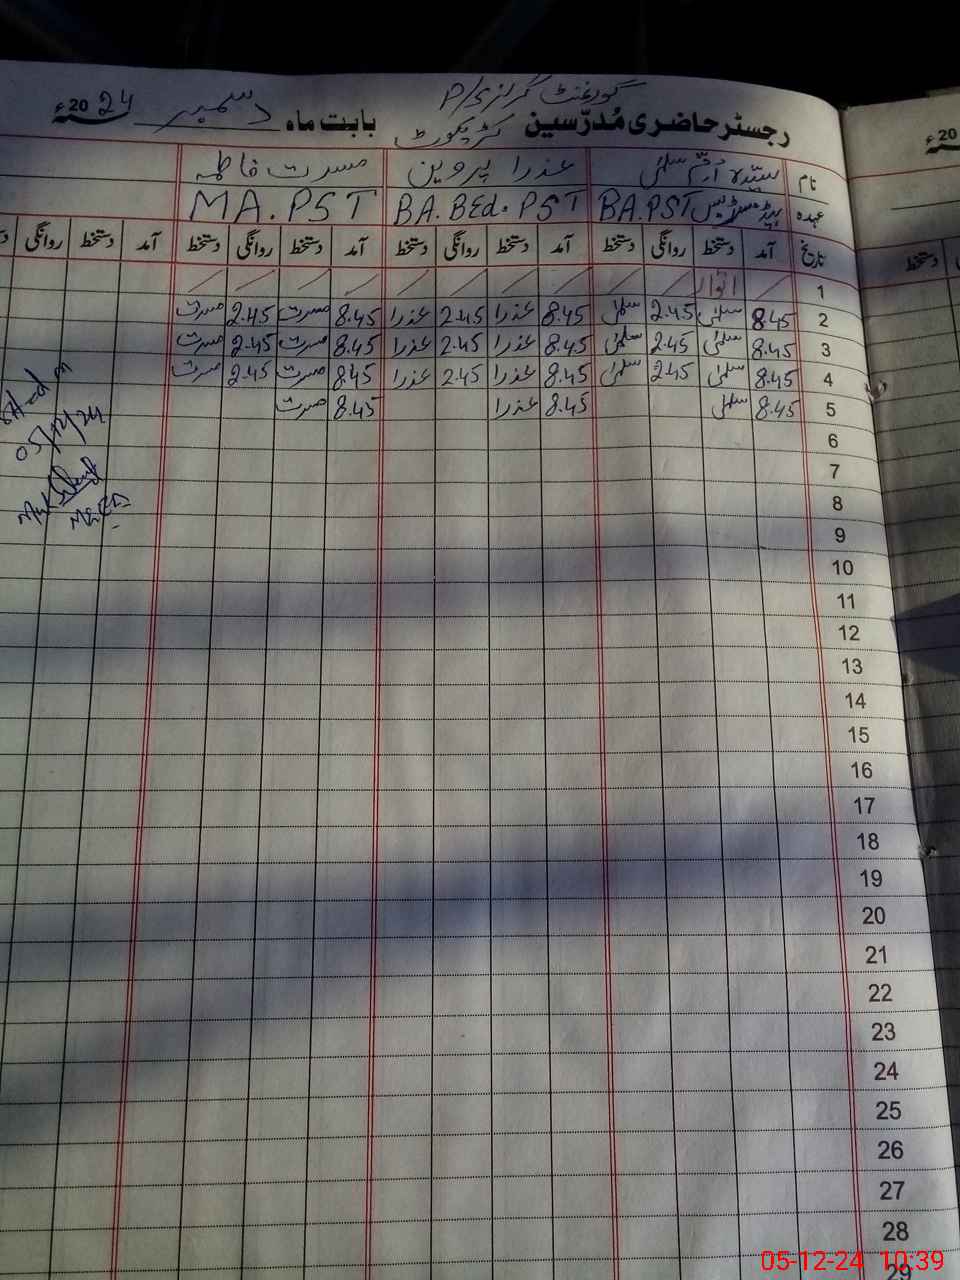 گورنمنٹ گرلز P/S
رجسٹر حاضری مُدرّسین کٹڑیکوٹ بابت ماہ دسمبر 2024ء
نام سیّدہ اُمّ سلمٰی عذرا پروین مسرت فاطمہ
عہدہ ہیڈمسٹریس BA.PST BA.BEd.PST MA.PST
تاریخ آمد دستخط روانگی دستخط آمد دستخط روانگی دستخط آمد دستخط روانگی دستخط آمد دستخط روانگی
1 اتوار
2 8.45 سلمٰی 2.45 سلمٰی 8.45 عذرا 2.45 عذرا 8.45 مسرت 2.45 مسرت
3 8.45 سلمٰی 2.45 سلمٰی 8.45 عذرا 2.45 عذرا 8.45 مسرت 2.45 مسرت
4 8.45 سلمٰی 2.45 سلمٰی 8.45 عذرا 2.45 عذرا 8.45 مسرت 2.45 مسرت
5 8.45 سلمٰی 8.45 عذرا 8.45 مسرت
05/12/24
6
7
8
9
10
11
12
13
14
15
16
17
18
19
20
21
22
23
24
25
26
27
28
29
05-12-24 10:39